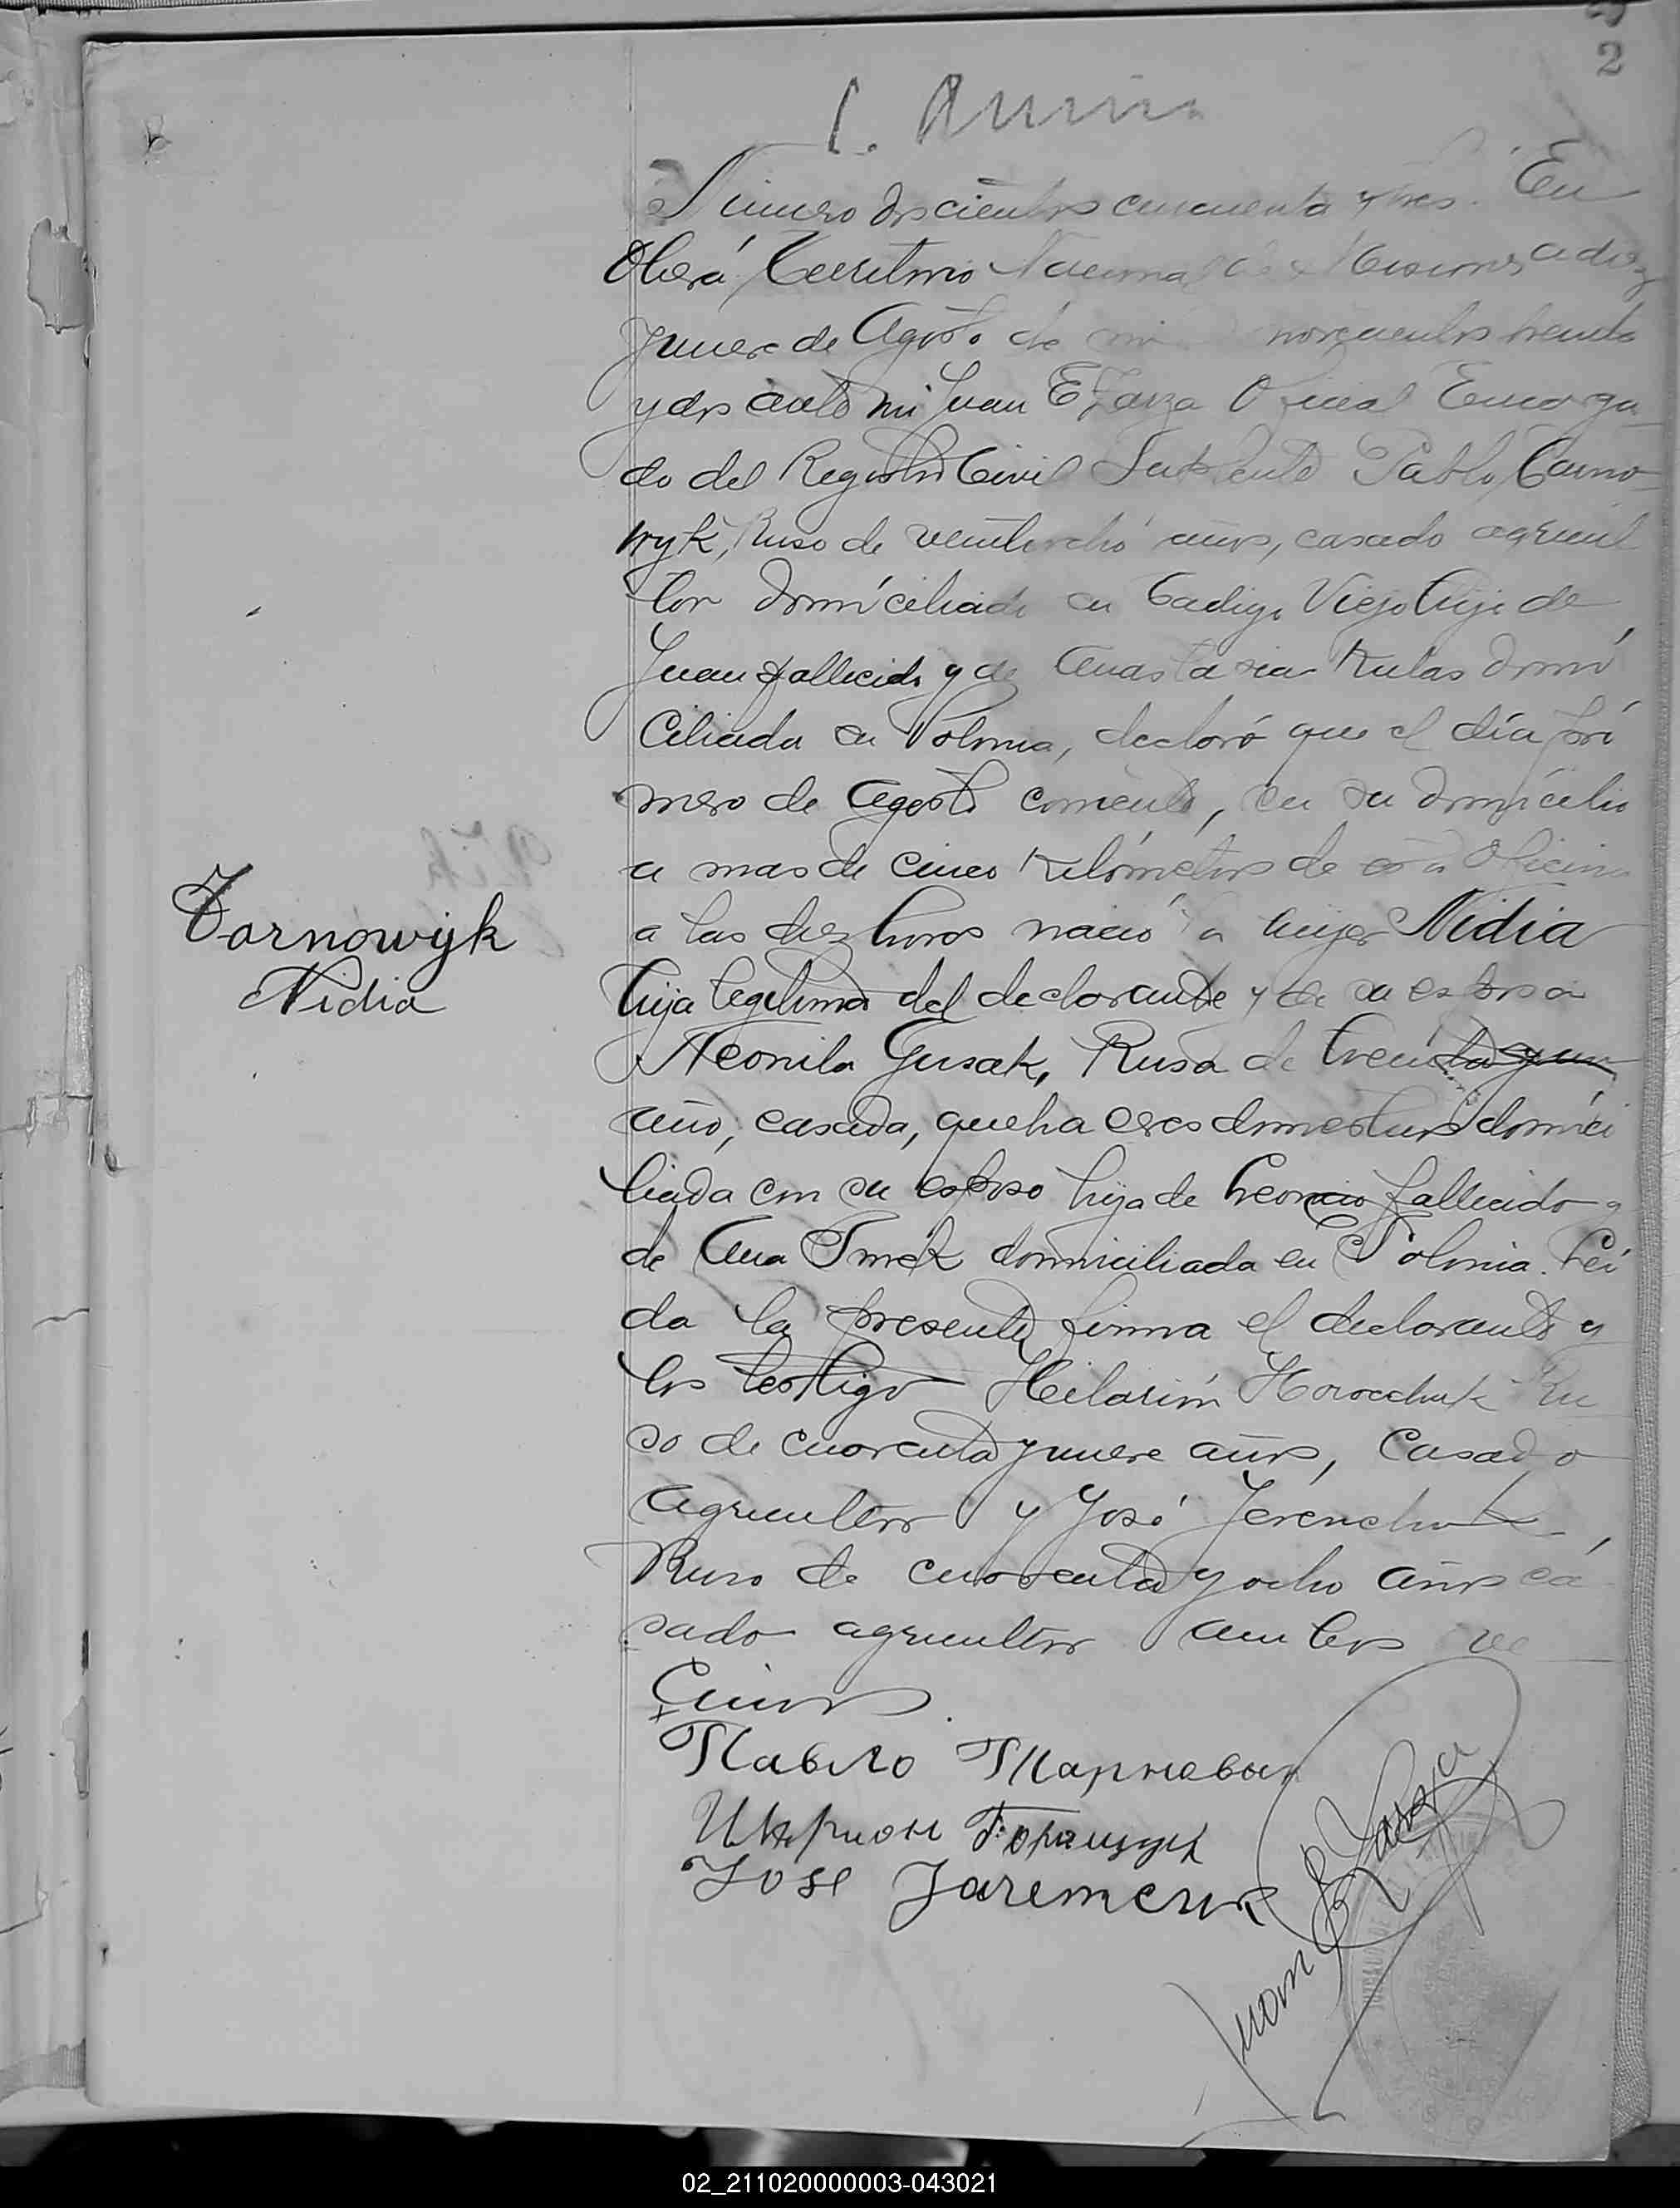 2
Número doscientos cincuenta y tres. En
Oberá Territorio Nacional de Misiones, a diez
y nueve de Agosto de mil novecientos treinta
y dos ante mi Juan E Zarza Oficial Encarga-
do del Registro Civil Pablo Tarno-
wyk, Ruso de veintiocho años, casado agricul
tor domiciliado en Viejo hijo de
Juan fallecido y de Anastasia Kulas domi
ciliada en Polonia, declaró que el día pri
mero de Agosto corriente, en su domicilio
a mas de cinco Kilómetros de esta Oficina
a las diez horas nació la mujer Nidia
hija legitima del declarante y de su esposa
Neonila Gusak, Rusa de treinta y un
año, casada, quehaceres domesticos domici
liada con su esposo hija de Leoncio fallecido y
de Ana domiciliada en Polonia. Leí
da la presente firma el declarante y
los testigos Hilarión Horoschuk Ru
so de cuarenta y nueve años, Casado
agricultor y José Jeremchuk,
Ruso de cuarenta y ocho años ca
sado agricultor ambos ve
cinos.
Tarnowyk
Nidia
Павло Тарновик
Иларион Горащук
José Jaremczuk
Juan E Zarza
02_211020000003-043021